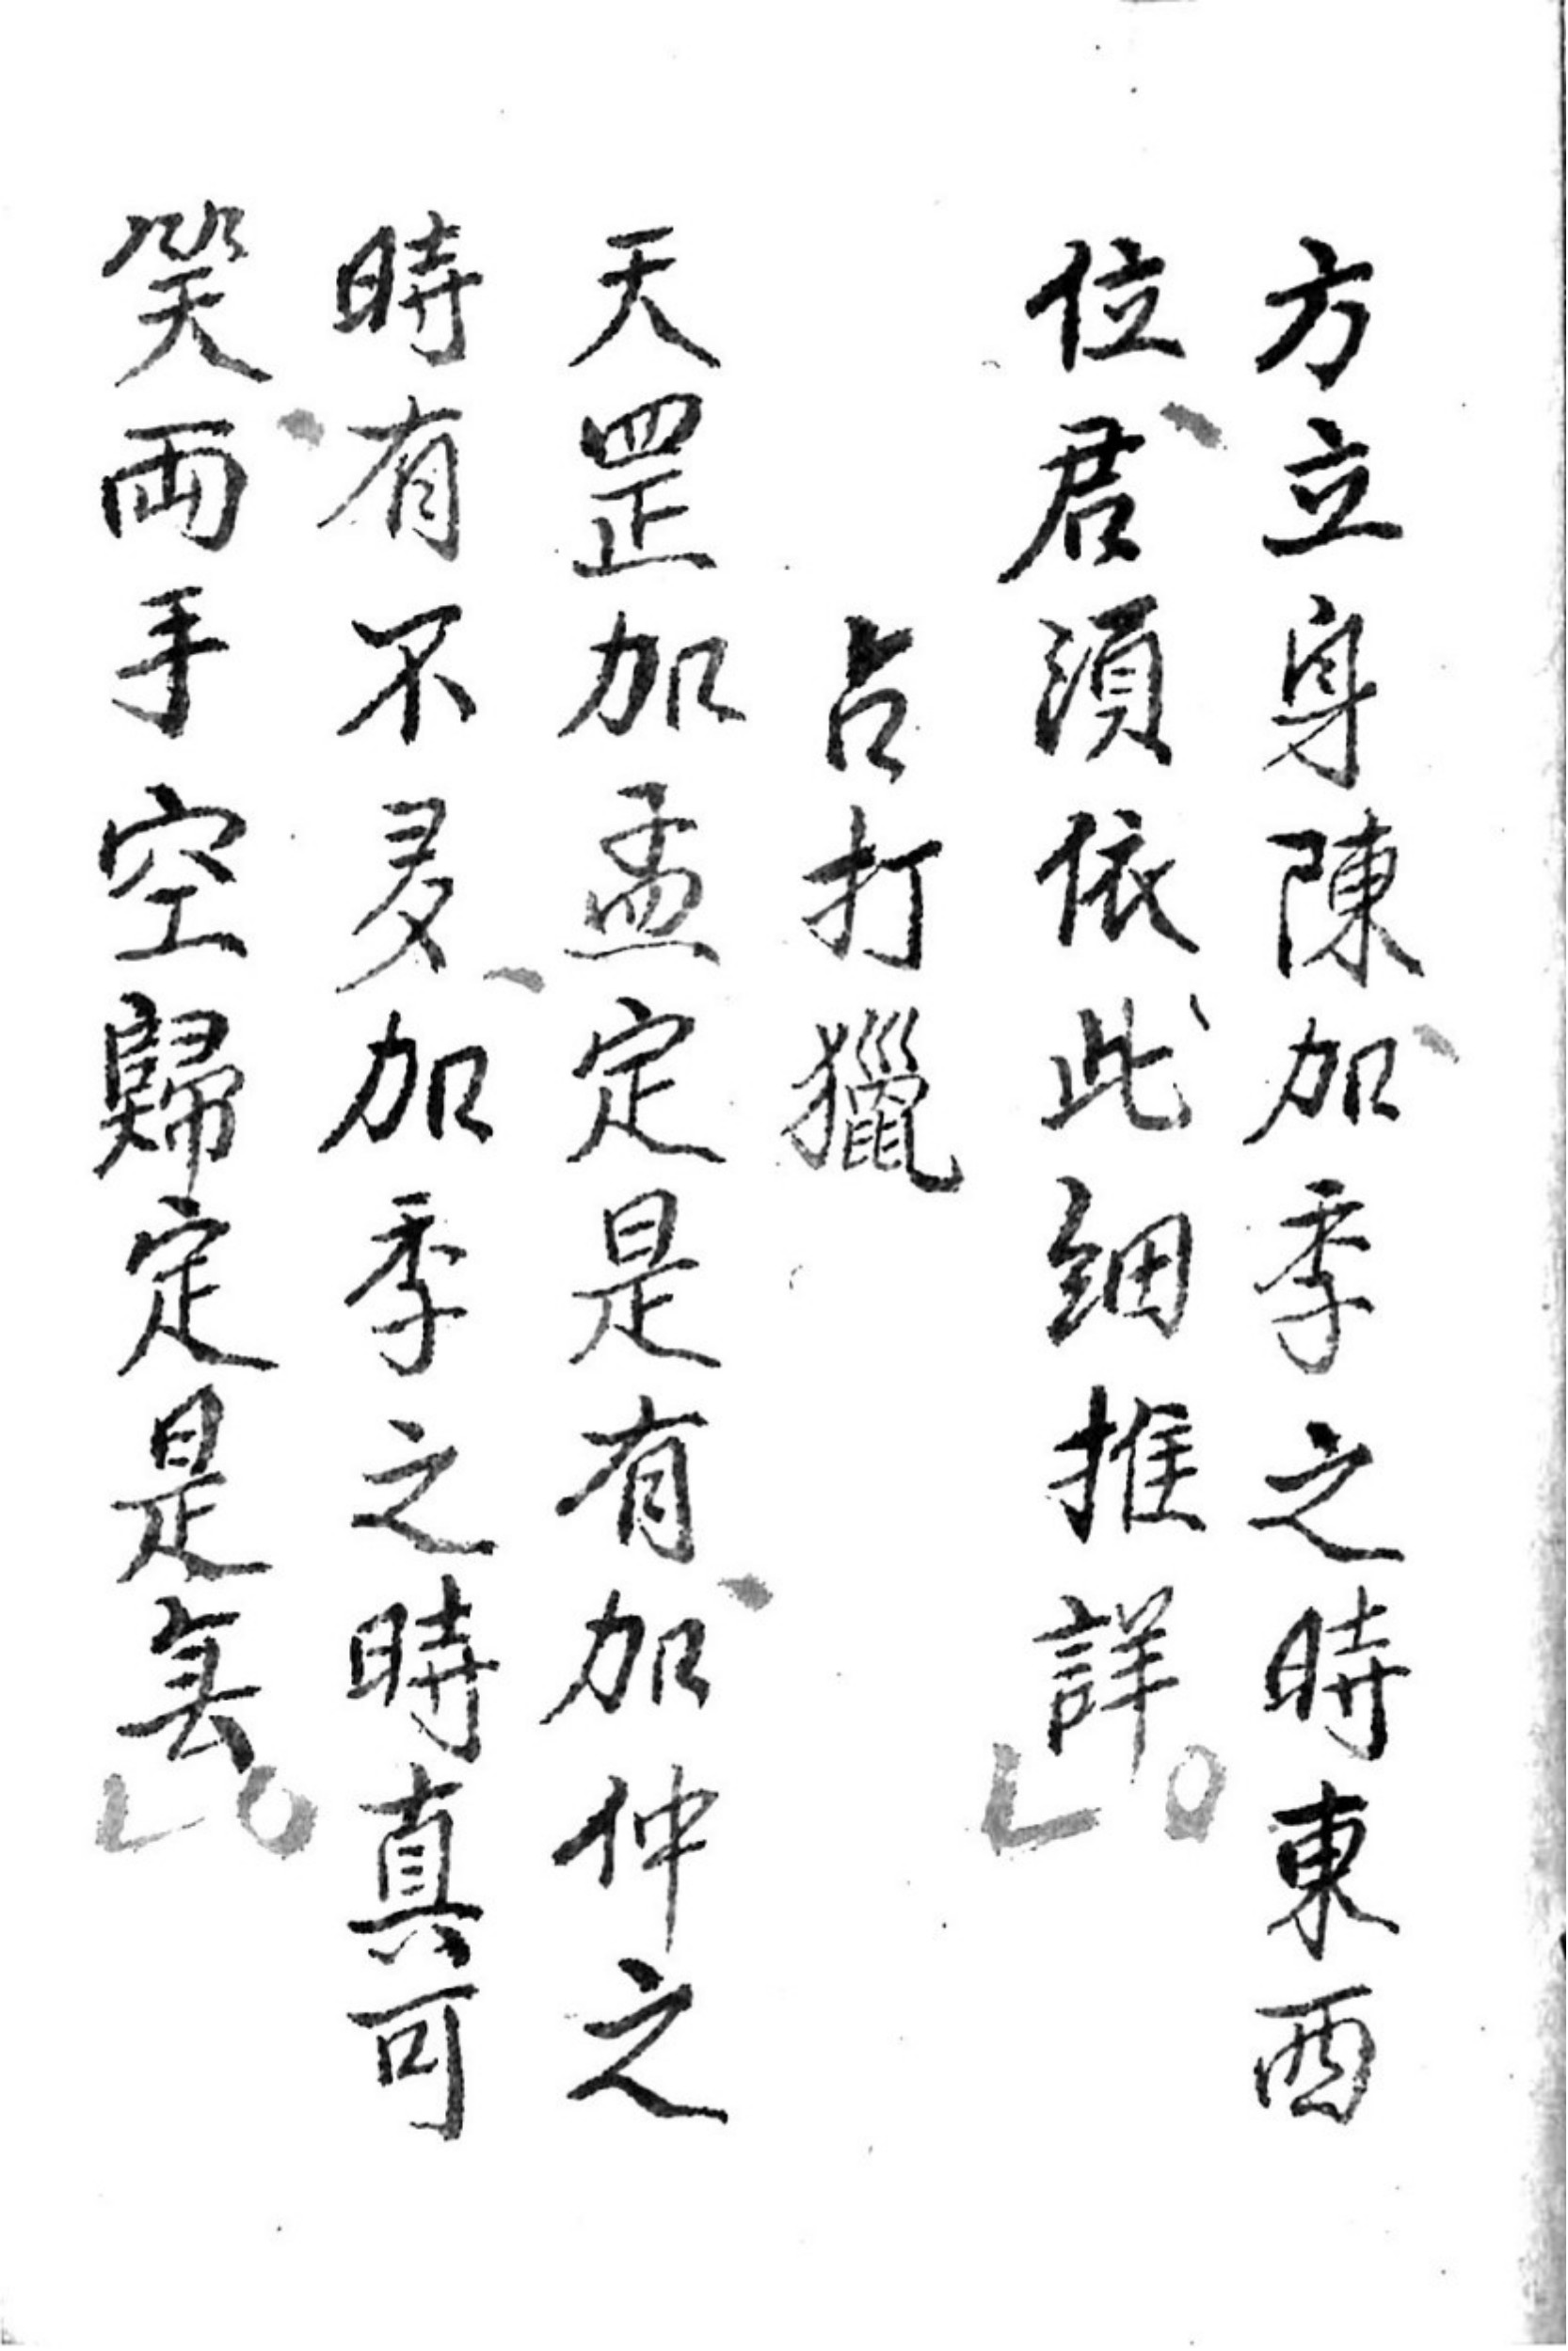 方立身陳加季之時東西
位君須依此細推詳
占打獵
天罡加孟定是有加仲之
時有不多加季之時真可
笑両手空歸定是無